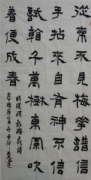 從來不見梅花譜信
手拈來自有神不信
試看千萬樹東風吹
著便成春